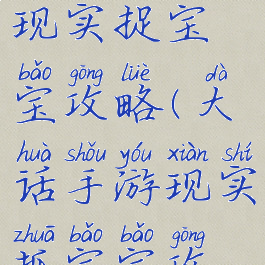 现实捉宝
bǎo gōng lüè dà
宝攻略(大
huà shǒu yóu xiàn shí
话手游现实
zhuā bǎo bǎo gōng
抓宝宝攻